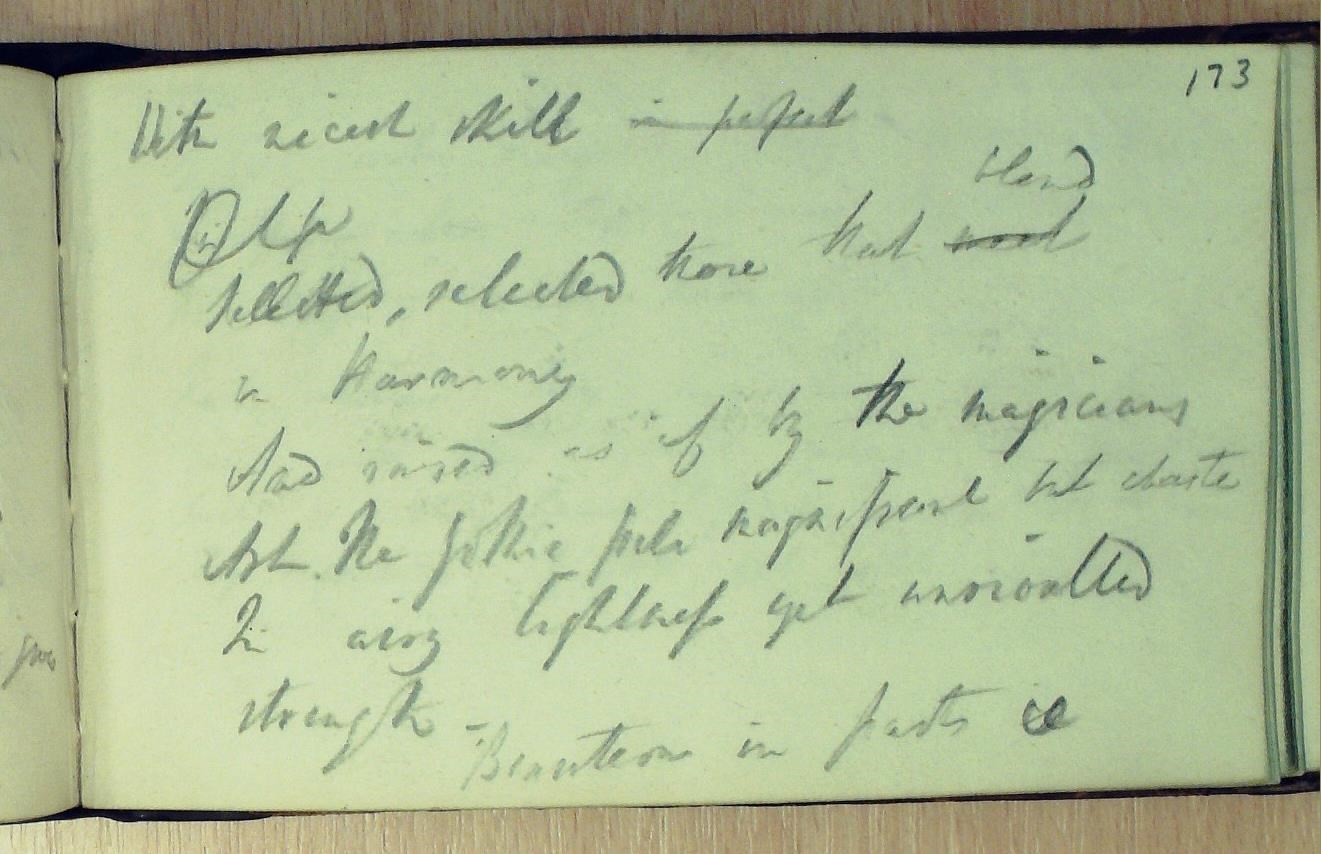 173
With nicest skill in perfect
bland
Selected, selected those that
in Harmony
And raised as if by the magicians
Art. The gothic pile magnificent but chaste
In airy lightness yet unrivalled
strength -
Beauteous in parts